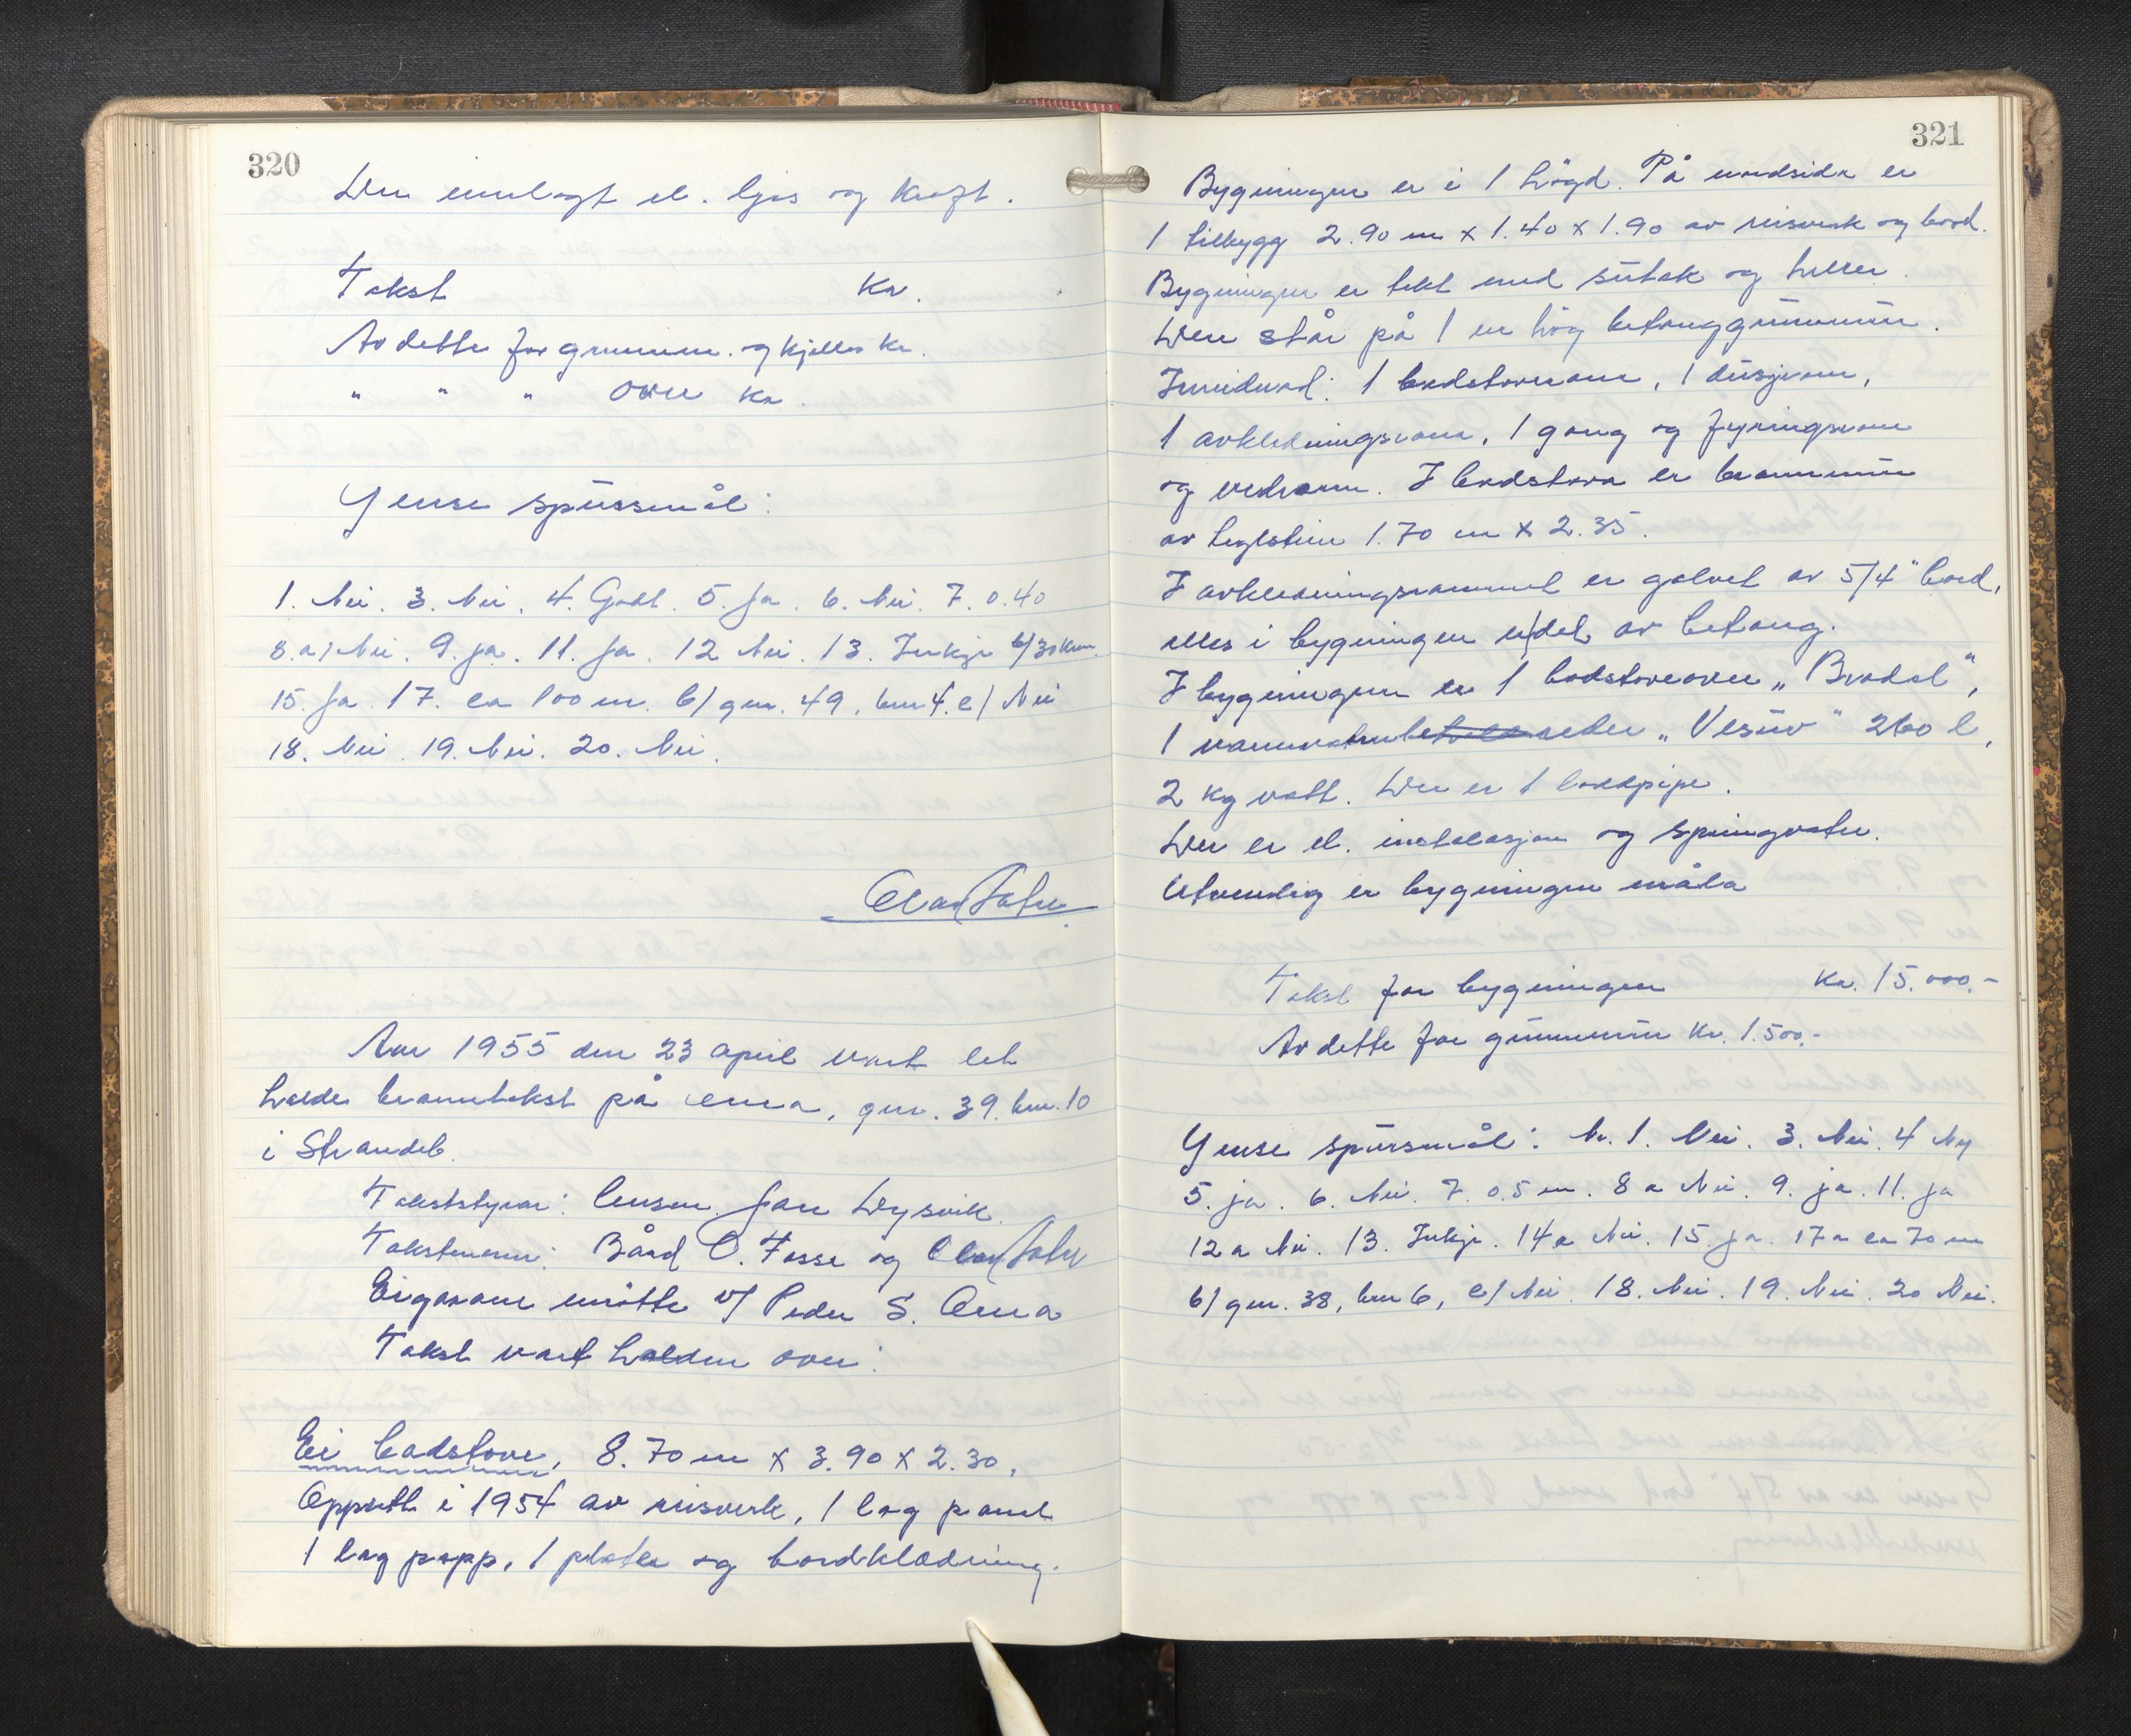 320
Der innlagt el. ljos og kraft.
Takst Kr.
Av dette for grunnm. og kjellar Kr.
" " " ovn Kr.
Ymse spursmål:
1. Nei. 3. Nei. 4. Godt. 5. Ja. 6. Nei. 7. 0.40
8.a) Nei. 9. Ja. 11. Ja. 12 Nei. 13. Innkjø b/30 km.
15. Ja. 17. ca 100 m. b/ gnr. 49, bnr 4. c/ Nei
18. Nei. 19. Nei. 20. Nei.
Olav
Aar 1955 den 23 april vart let
halde branntakst på Oma, gnr. 39. bnr. 10
i Strandeb.
Takststyrar: Lensm. Jon Dysvik
Takstmenn: Bård O. Fosse og Olav
Eigarane møtte v/ Peder S. Oma
Takst vart halden over:
Ei badstove, 8.70 m x 3.90 x 2.30,
Oppsett i 1954 av reisverk, 1 lag panel
1 lag papp, 1 plater og bordklædning.
321
Bygningen er i 1 högd. På nordsida er
1 tilbygg 2.90 m x 1.40 x 1.90 av reisverk og bord.
Bygningen er tekt med sutak og heller.
Den står på 1 m høg betonggrunnmur.
Innidund: 1 badstoverom, 1 dusjrom,
1 avklædningsrom, 1 gang og fyringsrom
og vedrom. I badstova er brannmur
av teglstein 1.70 m x 2.35.
I avklædningsrommet er golvet av 5/4" bord,
elles i bygningen er det av betong.
I bygningen er 1 badstoveovn „Bradal",
1 varmvatnbereder „Vesuv" 260 l,
2 kg vatt. Der er 1 bladpipe.
Der er el. installasjon og springvatn.
Utvendig er bygningen måla
Takst for bygningen Kr. 15.000.-
Av dette for grunnmur Kr. 1.500.-
Ymse spursmål: Nr. 1. Nei. 3. Nei. 4 Ny
5. ja. 6. Nei. 7. 0.5 m. 8 a Nei. 9. ja. 11. Ja
12 a Nei. 13. Innkjø. 14 a Nei. 15. ja. 17 a ca 70 m
b/ gnr. 38, bnr 6, c/ Nei. 18. Nei. 19. Nei. 20 Nei.